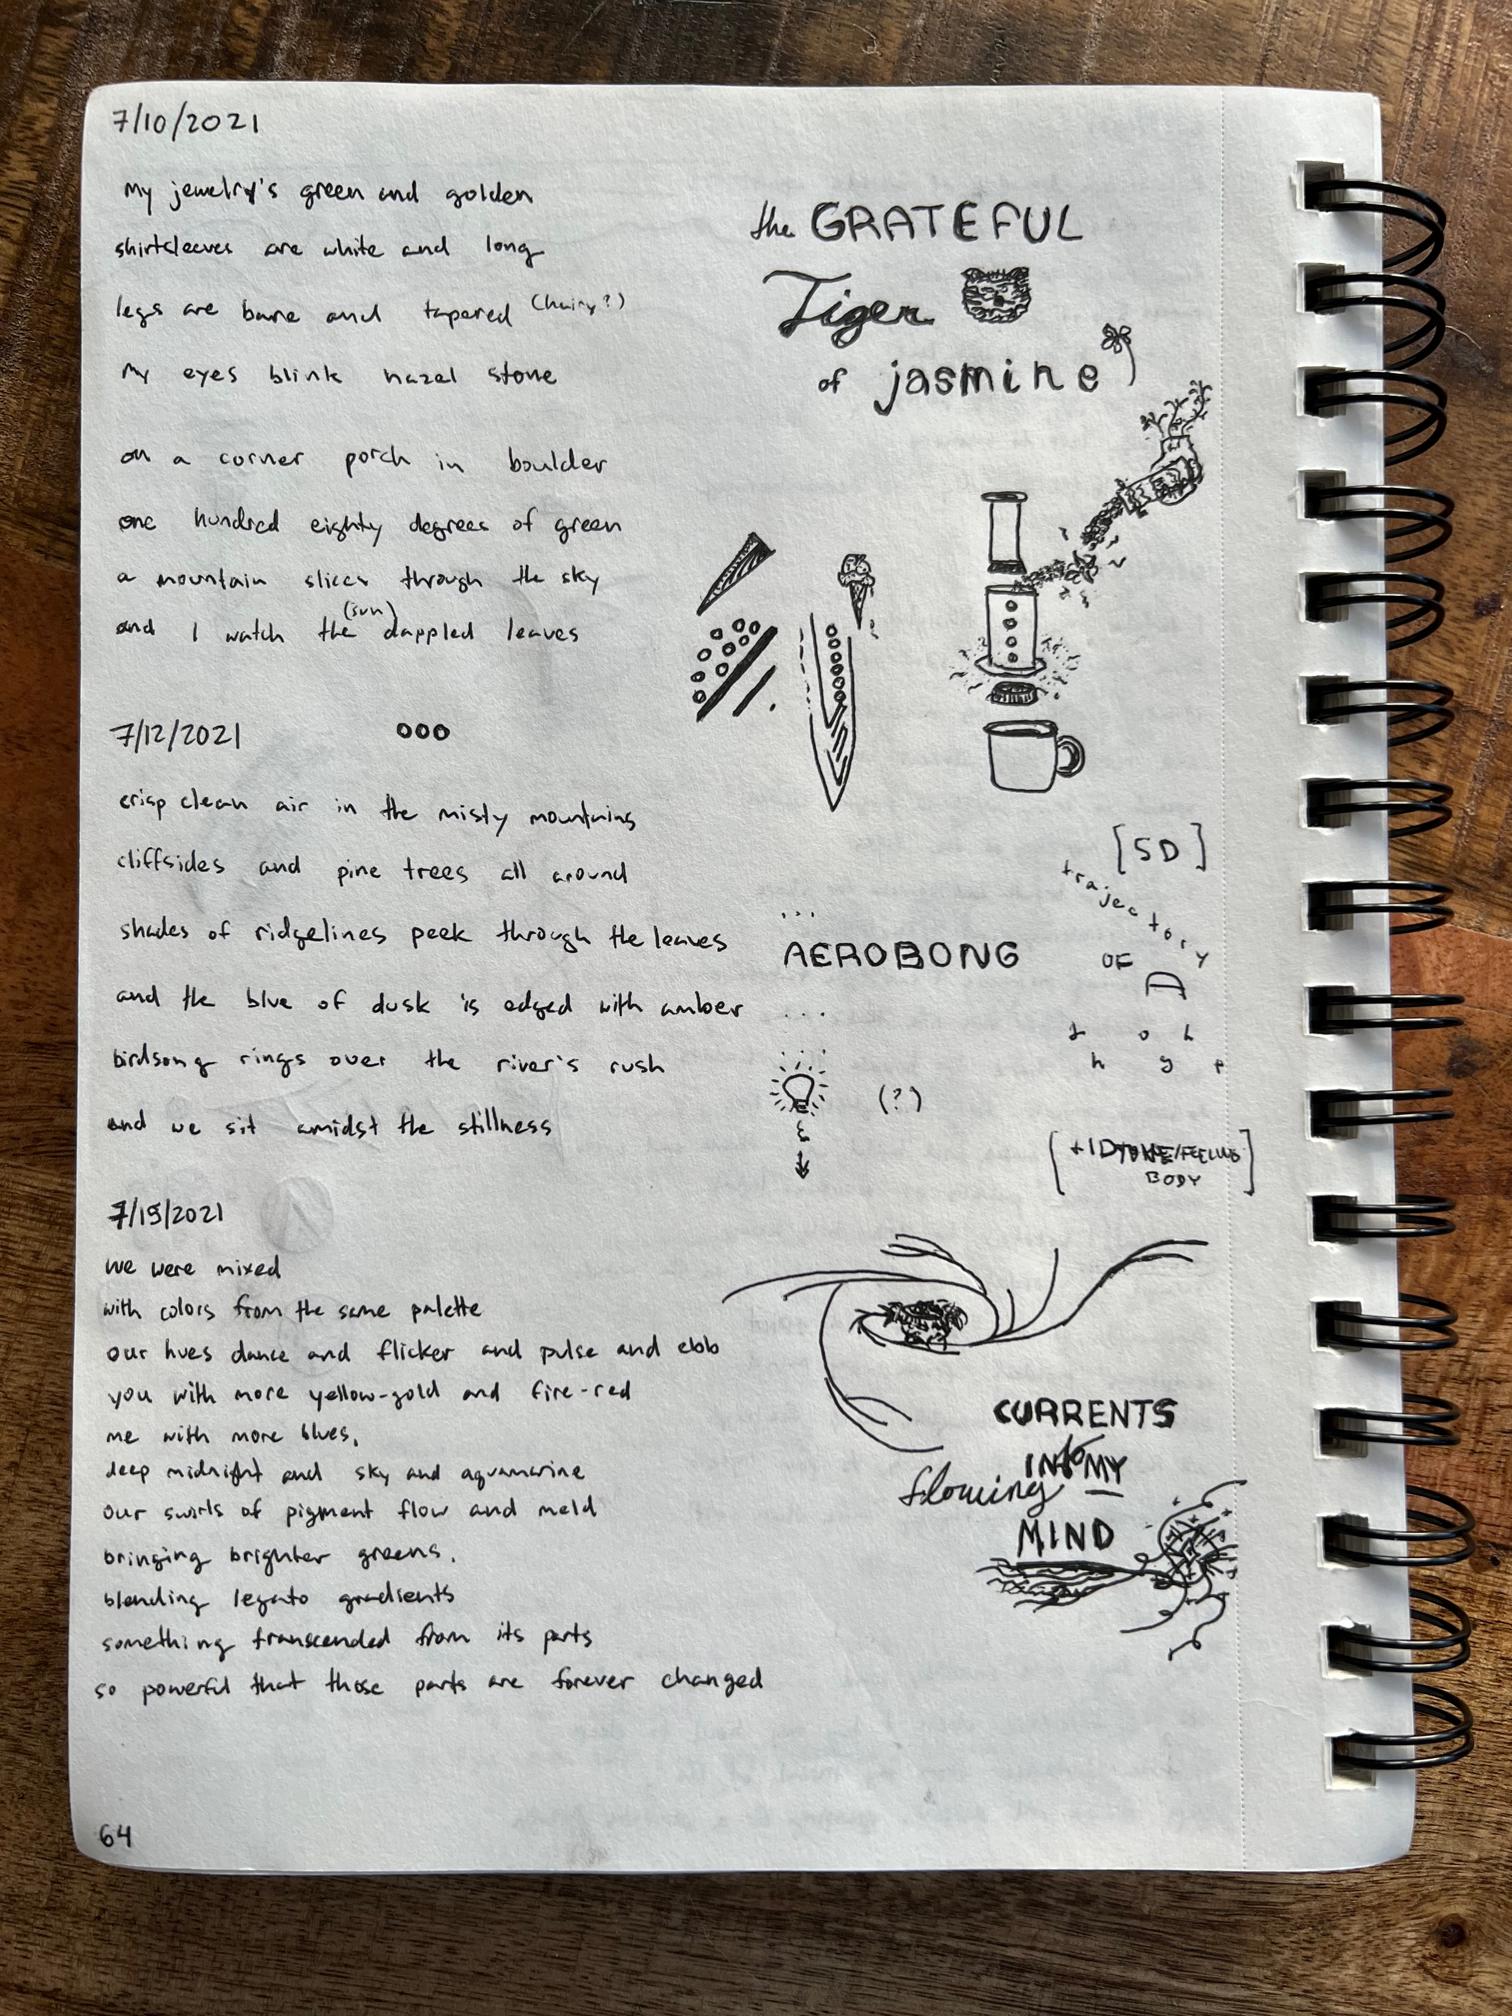 7/10/2021
my jewelry's green and golden
shirtsleeves are white and long
legs are bare and tapered (hairy?)
my eyes blink hazel stone
on a corner porch in boulder
one hundred eighty degrees of green
a mountain slices through the sky
and I watch the (sun) dappled leaves
7/12/2021
crisp clean air in the misty mountains
cliffsides and pine trees all around
shades of ridgelines peek through the leaves
and the blue of dusk is edged with amber
birdsong rings over the river's rush
and we sit amidst the stillness
7/15/2021
we were mixed
with colors from the same palette
our hues dance and flicker and pulse and ebb
you with more yellow-gold and fire-red
me with more blues,
deep midnight and sky and aquamarine
our swirls of pigment flow and meld
bringing brighter greens,
blending legato gradients
something transcended from its parts
so powerful that those parts are forever changed
64
the GRATEFUL
Tiger
of jasmine
[5D]
trajectory
OF
A
thoght
...
AEROBONG
...
(?)
[+1D /FEELING
BODY]
CURRENTS
flowing INTO MY
MIND